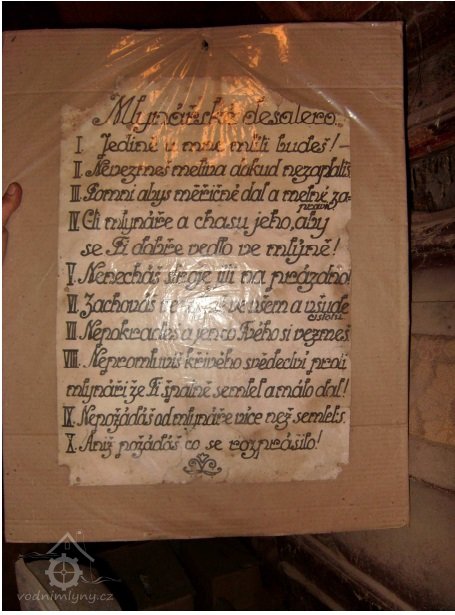 Mlynářské desatero...
I. Jediné u mne mlíti budeš! –
II. Nevezmeš meliva dokud nezaplatíš
III. Pomni abys měřičné dal a melné za-
pravil.
IV. Cti mlynáře a chasu jeho, aby
se Ti dobře vedlo ve mlýně!
V. Nenecháš stroje jíti na prázdno!
VI. Zachováš ve všem a všude
čistotu.
VII. Nepokradeš a jen co Tvého si vezmeš.
VIII. Nepromluvíš křivého svědectví proti
mlynáři že Ti špatně semlel a málo dal!
IX. Nepožádáš od mlynáře více než semlels.
X. Aniž požádáš co se rozprášilo!
vodnimlyny.cz